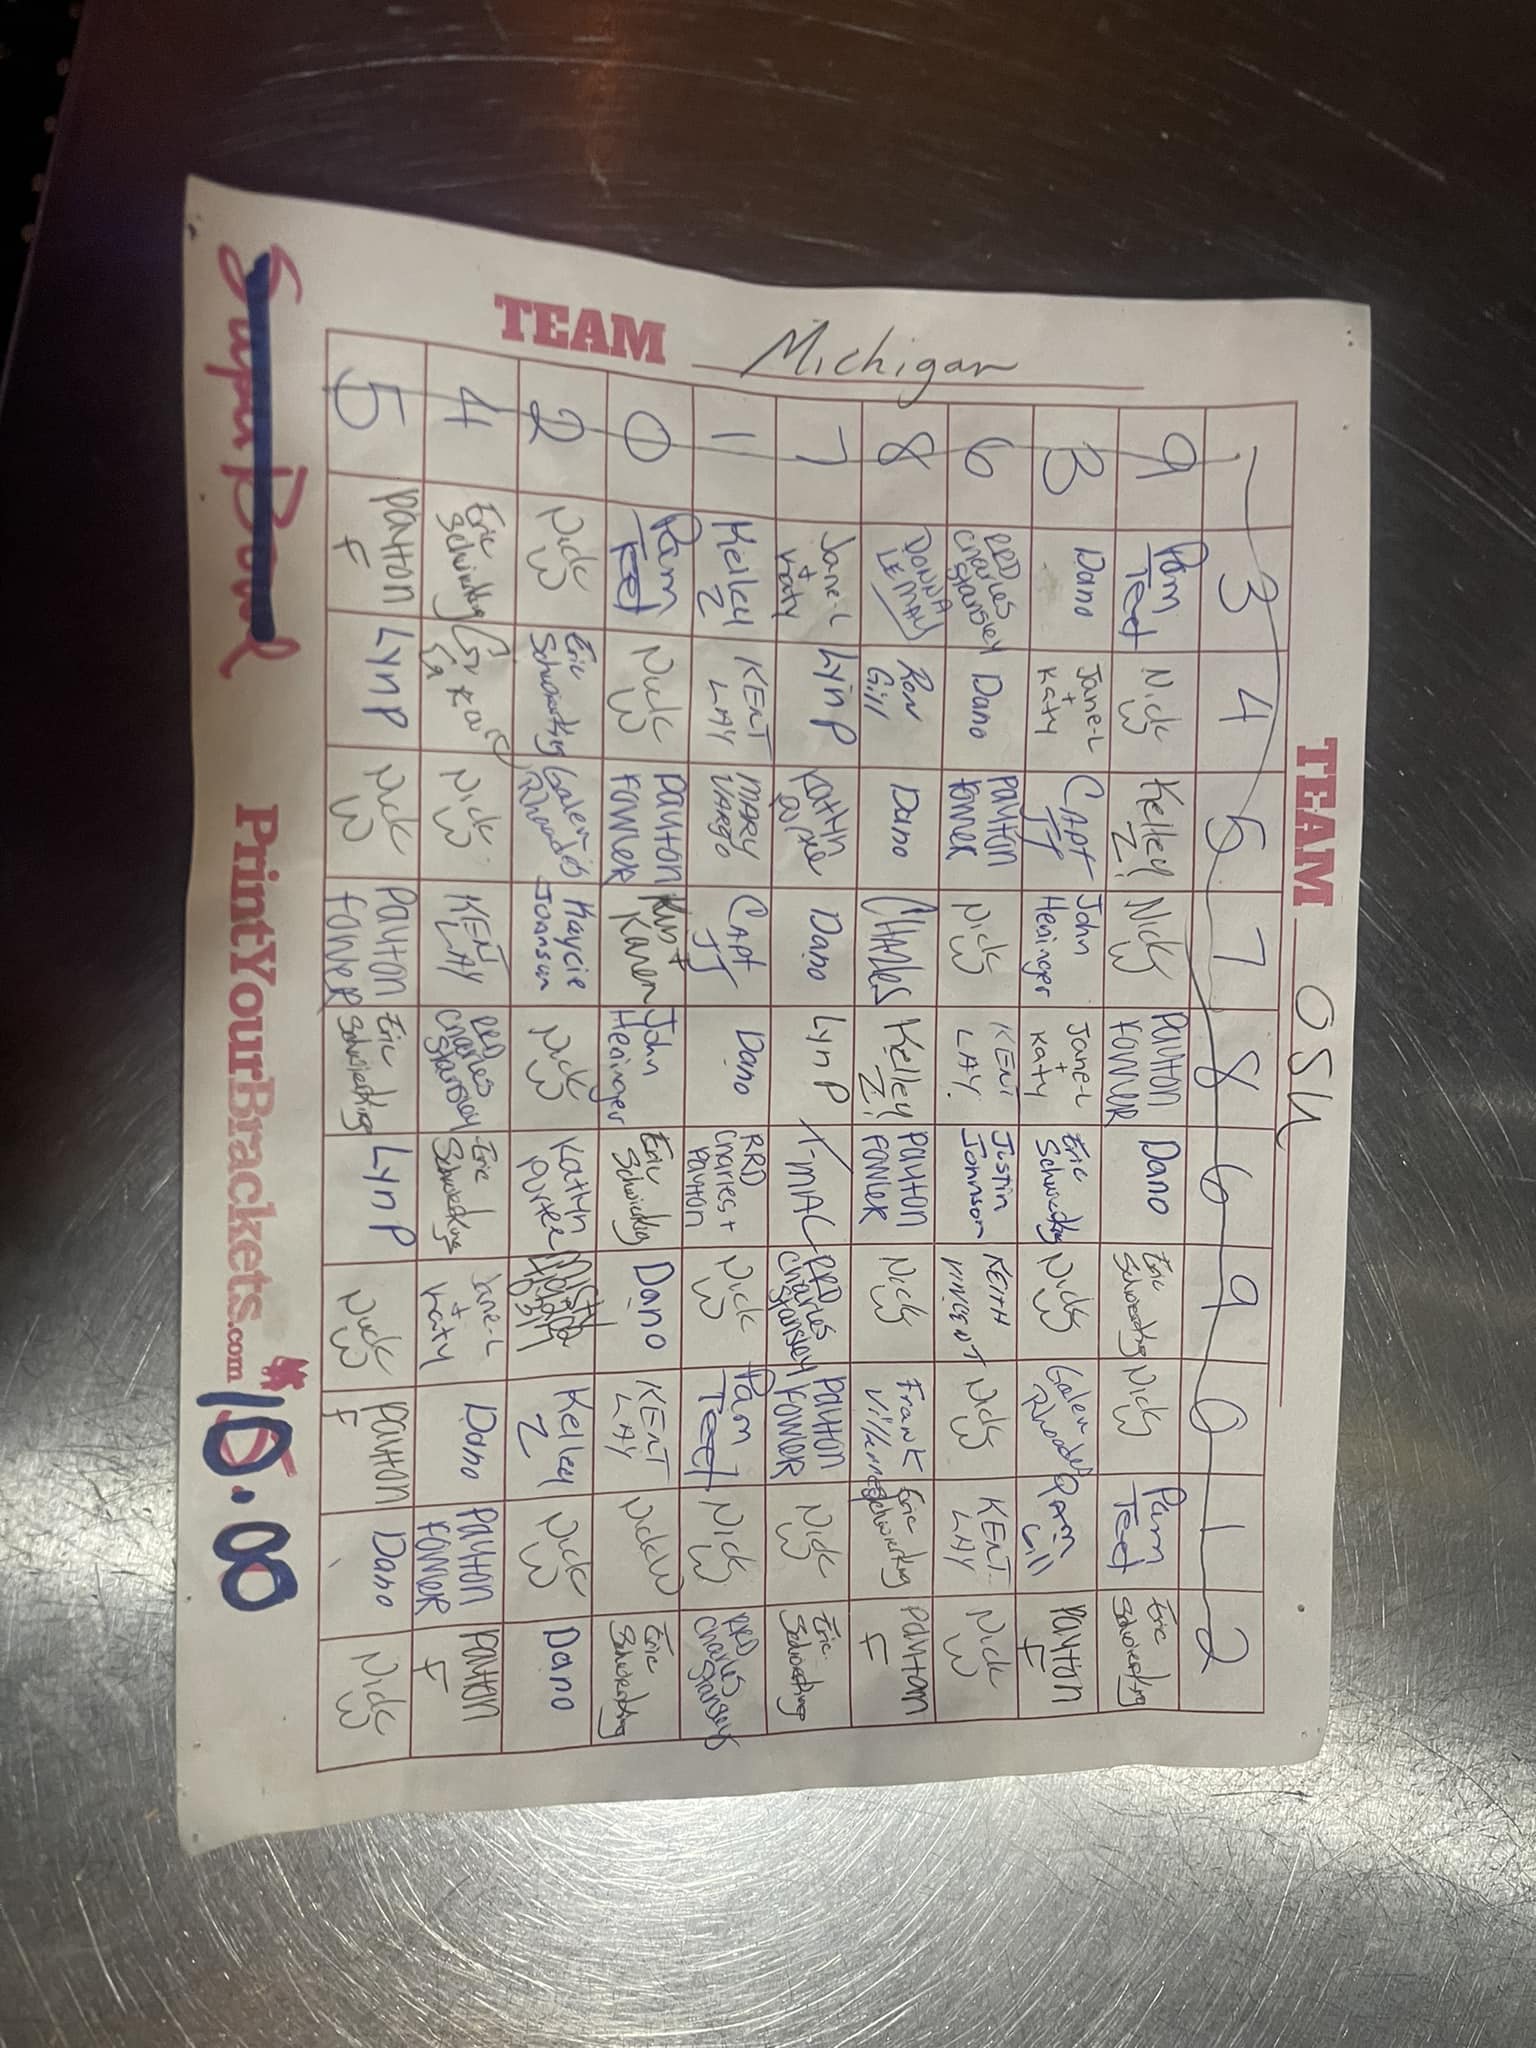 TEAM OSU
TEAM Michigan
3 4 5 7 8 6 9 0 1 2
9
Pam
Teet
Nick
W
Kelley
Z!
Nick
W
Payton
Fowler
Dano
Eric
Schwierking
Nick
W
Pam
Teet
Eric
Schwierking
3
Dano
Jane-L
+
Katy
CAPT
JJ
John
Heringer
Jane-L
+
Katy
Eric
Schwierking
Nick
W
Galen
Rhoades
Pam
Gill
Payton
F
6
RRD
Charles
Stansley
Dano
Payton
Fowler
Nick
W
KENT
LAY
Justin
Johnson
KEITH
VINCENT
Nick
W
KENT
LAY
Nick
W
8
DONNA
LEMAY
Ron
Gill
Dano
CHARLES
Kelley
Z!
Payton
Fowler
Nick
W
Frank
Eric
Schwierking
Payton
F
7
Jane-L
+
Katy
Lyn P
Dano
Lyn P
T-MAC
RRD
Charles
Stansley
Payton
Fowler
Nick
W
Eric
Schwierking
1
Kelley
Z
KENT
LAY
MARY
VARGO
CAPT
JJ
Dano
RRD
Charles +
Payton
Nick
W
Pam
Teet
Nick
W
RRD
Charles
Stansley
0
Pam
Teet
Nick
W
Payton
Fowler
Kurt +
Karen
John
Heringer
Eric
Schwierking
Dano
KENT
LAY
Nick W
Eric
Schwierking
2
Nick
W
Eric
Schwierking
Galen
Rhoades
Kaycie
Johnson
Nick
W
Kelley
Z
Nick
W
Dano
4
Eric
Schwierking
Nick
W
KENT
LAY
RRD
Charles
Stansley
Eric
Schwierking
Jane-L
+
Katy
Dano
Payton
Fowler
Payton
F
5
Payton
F
Lyn P
Nick
W
Payton
Fowler
Eric
Schwierking
Lyn P
Nick
W
Payton
F
Dano
Nick
W
Super Bowl PrintYourBrackets.com 10.00